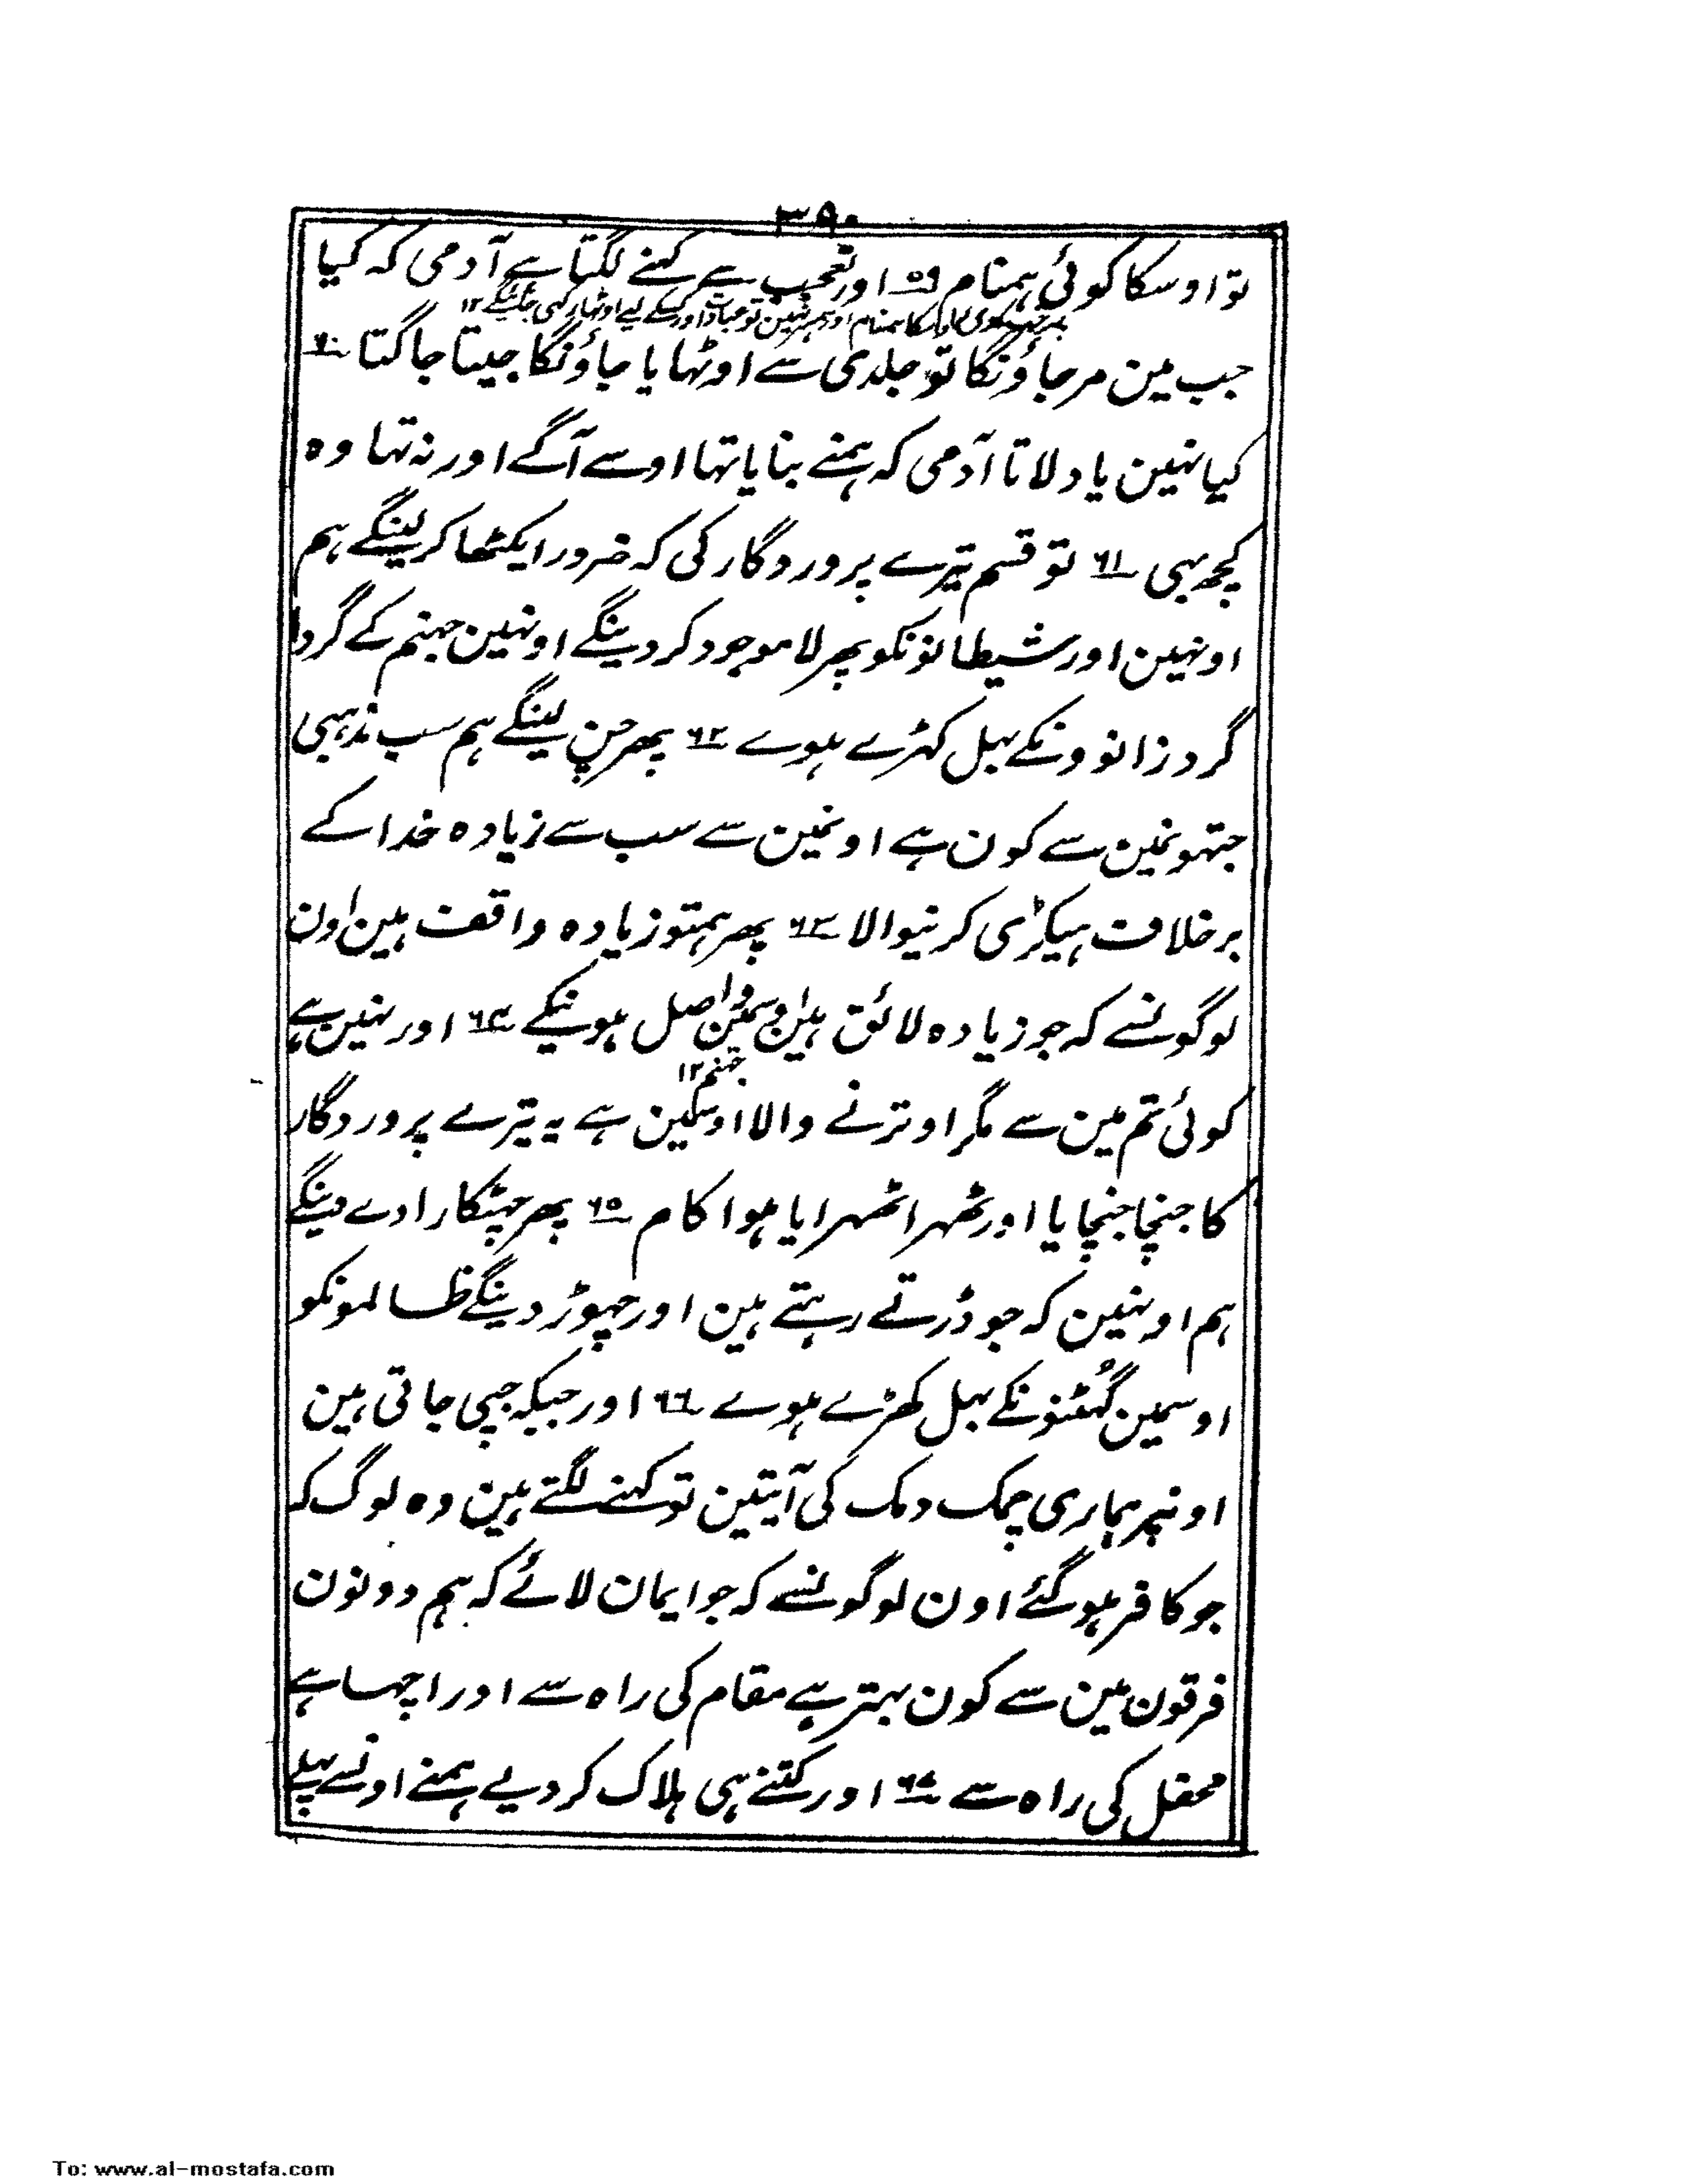 ۳۹۰
تو اوسکا کوئی ہمنام ۵۹ اور تعجب سے کہنے لگتا ہے آدمی کہ کیا
جب مین مرجاؤنگا تو جلدی سے اوٹھایا جاؤنگا جیتا جاگتا ۶۰
کیا نہین یاد لاتا آدمی کہ ہمنے بنایا تہا اوسے آگے اور نہ تہا وہ
کچھ بہی ۶۱ تو قسم تیرے پروردگار کی کہ ضرور ایکٹھا کرلینگے ہم
اونہین اور شیطانونکو پھر لا موجود کردینگے اونہین جہنم کے گردا
گرد زانوونکے بہل کہڑے ہوے ۶۲ پھر چن لینگے ہم سب مذہبی
جتہونمین سے کون ہے اونمین سے سب سے زیادہ خدا کے
برخلاف ہیکڑی کرنیوالا ۶۳ پھر ہمتو زیادہ واقف ہین اون
لوگونسے کہ جو زیادہ لائق ہین اوسمین واصل ہونیکے ۶۴ اور نہین ہے
جہنم ۱۲
کوئی تم مین سے مگر اوترنے والا اوسمین ہے یہ تیرے پروردگار
کا جنچا جنچایا اور ٹھہرا ٹھہرایا ہوا کام ۶۵ پھر چہٹکارا دے دینگے
ہم اونہین کہ جو ڈرتے رہتے ہین اور چہوڑ دینگے ظالمونکو
اوسمین گہٹنونکے بہل کھڑے ہوے ۶۶ اور جبکہ جپی جاتی ہین
اونپر ہماری چمک دمک کی آیتین تو کہنے لگتے ہین وہ لوگ کہ
جو کافر ہوگئے اون لوگونسے کہ جو ایمان لائے کہ ہم دونون
فرقون مین سے کون بہتر ہے مقام کی راہ سے اور اچہا ہے
محفل کی راہ سے ۶۷ اور کتنے ہی ہلاک کردیے ہمنے اونسے پہلے
To: www.al-mostafa.com